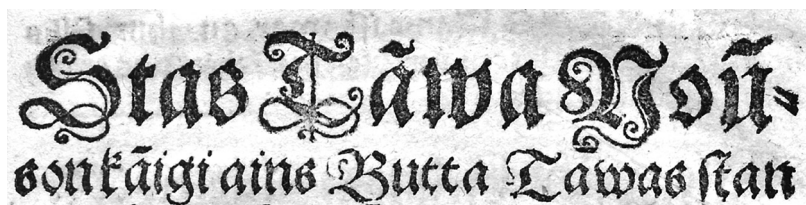 Stas Tāwa Noū⸗
son kāigi ains Butta Tāwas ſtan